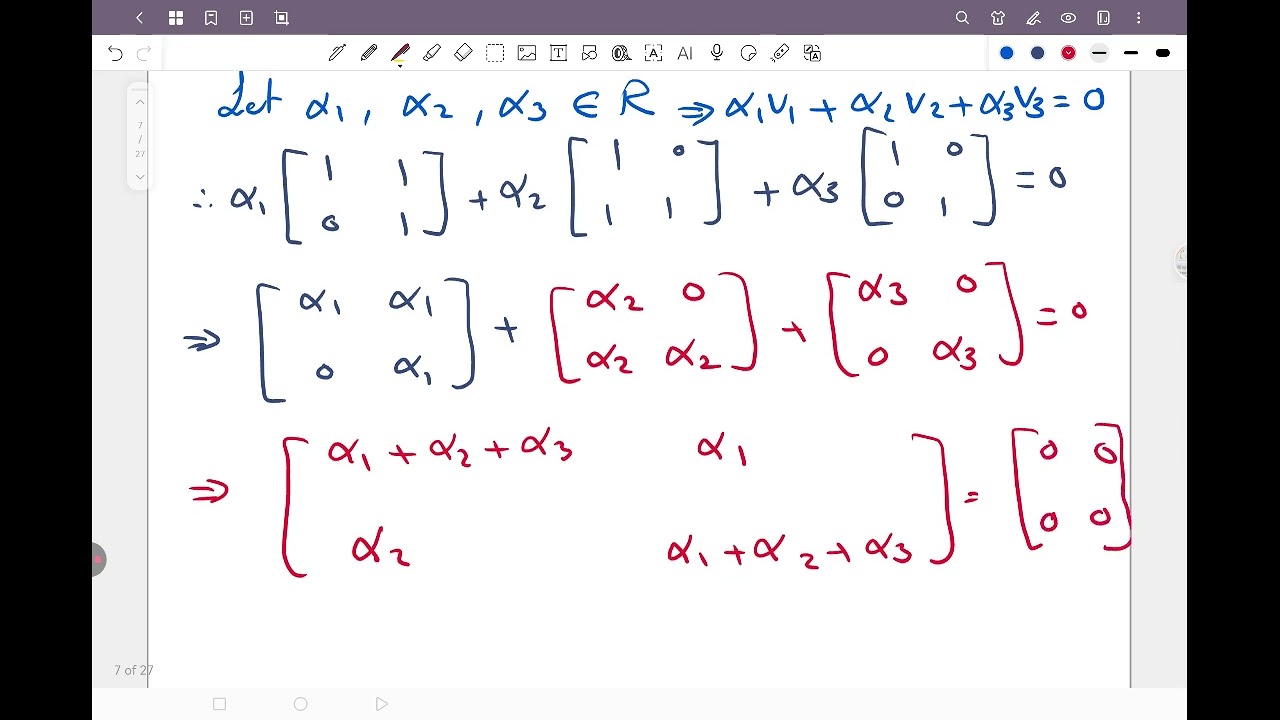 AI
7
/
27
Let α1, α2, α3 ∈ R ⇒ α1V1 + α2V2 + α3V3 = 0
∴ α1 [1 1; 0 1] + α2 [1 0; 1 1] + α3 [1 0; 0 1] = 0
⇒ [α1 α1; 0 α1] + [α2 0; α2 α2] + [α3 0; 0 α3] = 0
⇒ [α1 + α2 + α3 α1; α2 α1 + α2 + α3] = [0 0; 0 0]
7 of 27